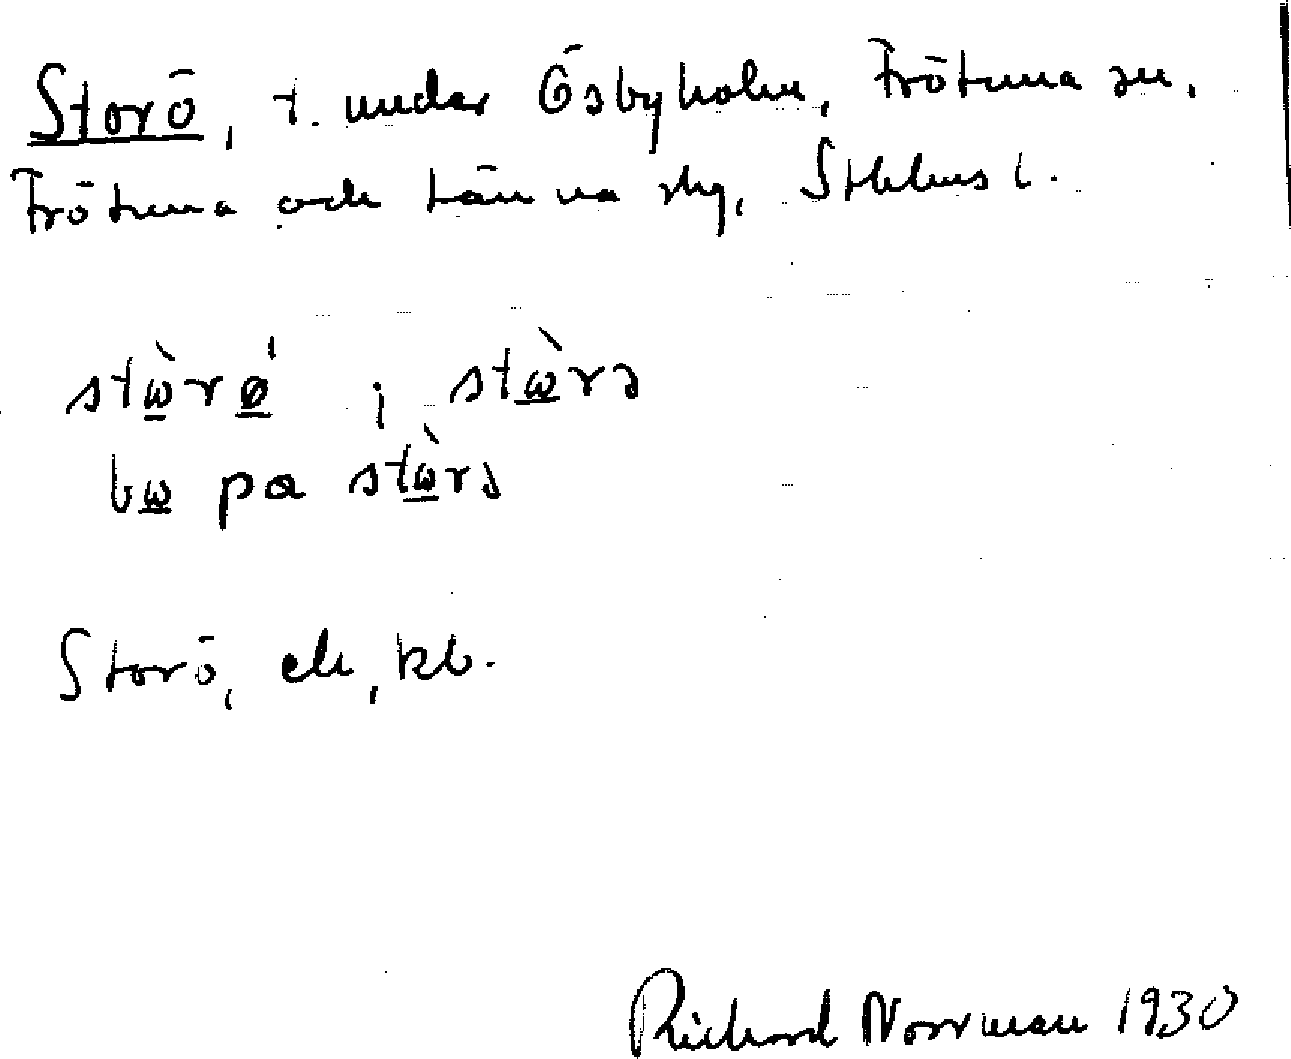 Storö, t. under Ösbyholm, Frötuna sn.
Frötuna och Länna skg, Sthlms l.
stὼ̲rǿ̲ ; stὼ̲rə
bω̲ pa stὼ̲rə
Storö, ek, kb.
Richard Norrman 1930